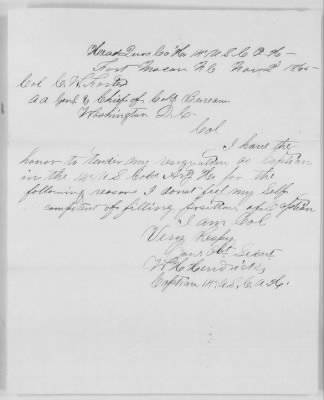 Head Qurs Co "H" 14 U.S.C.A.H.
Fort Macon N.C. Nov 2d 1865
Col C. W. Foster
A A Genl & Chief of Cold Bureau
Washington D.C.
Col
I have the
honor to tender my resignation as Captain
in the 14 U.S. Cold Art Hv for the
following reason I do not feel my self
competent of filling position of Captain
I am Col
Very Respy
Your Obt Servt
W H Hendricks
Captain 14 U.S.C.A.H.